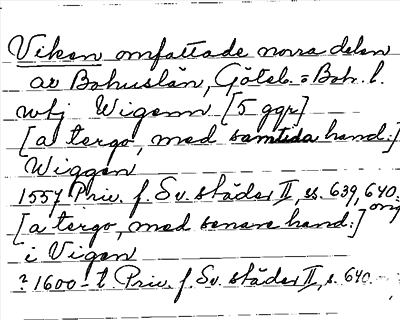 Viken omfattade norra delen
av Bohuslän, Göteb. o Boh. l.
utj Wigenn [5 ggr]
[a tergo, med samtida hand:]
Wiggen
1557 Priv. f. Sv. städer II, ss. 639, 640. orig
[a tergo, med senare hand:]
i Vigen
? 1600-t. Priv. f. Sv. städer II, s. 640.